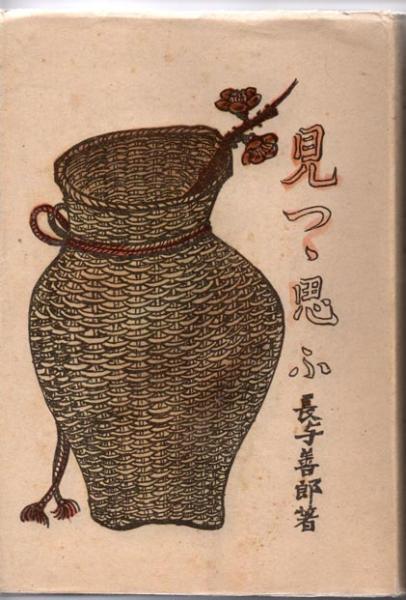 見つゝ思ふ
長与善郎著